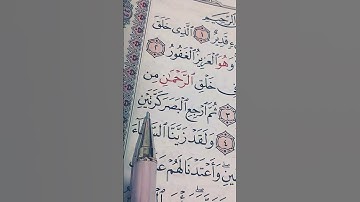 الرَّحِيمِ
قَدِيرٌ ١ الَّذِى خَلَقَ
وَهُوَ الْعَزِيزُ الْغَفُورُ ٢
فِى خَلْقِ الرَّحْمَٰنِ مِن
٣ ثُمَّ ارْجِعِ الْبَصَرَ كَرَّتَيْنِ
٤ وَلَقَدْ زَيَّنَّا السَّمَاءَ
وَأَعْتَدْنَا لَهُمْ